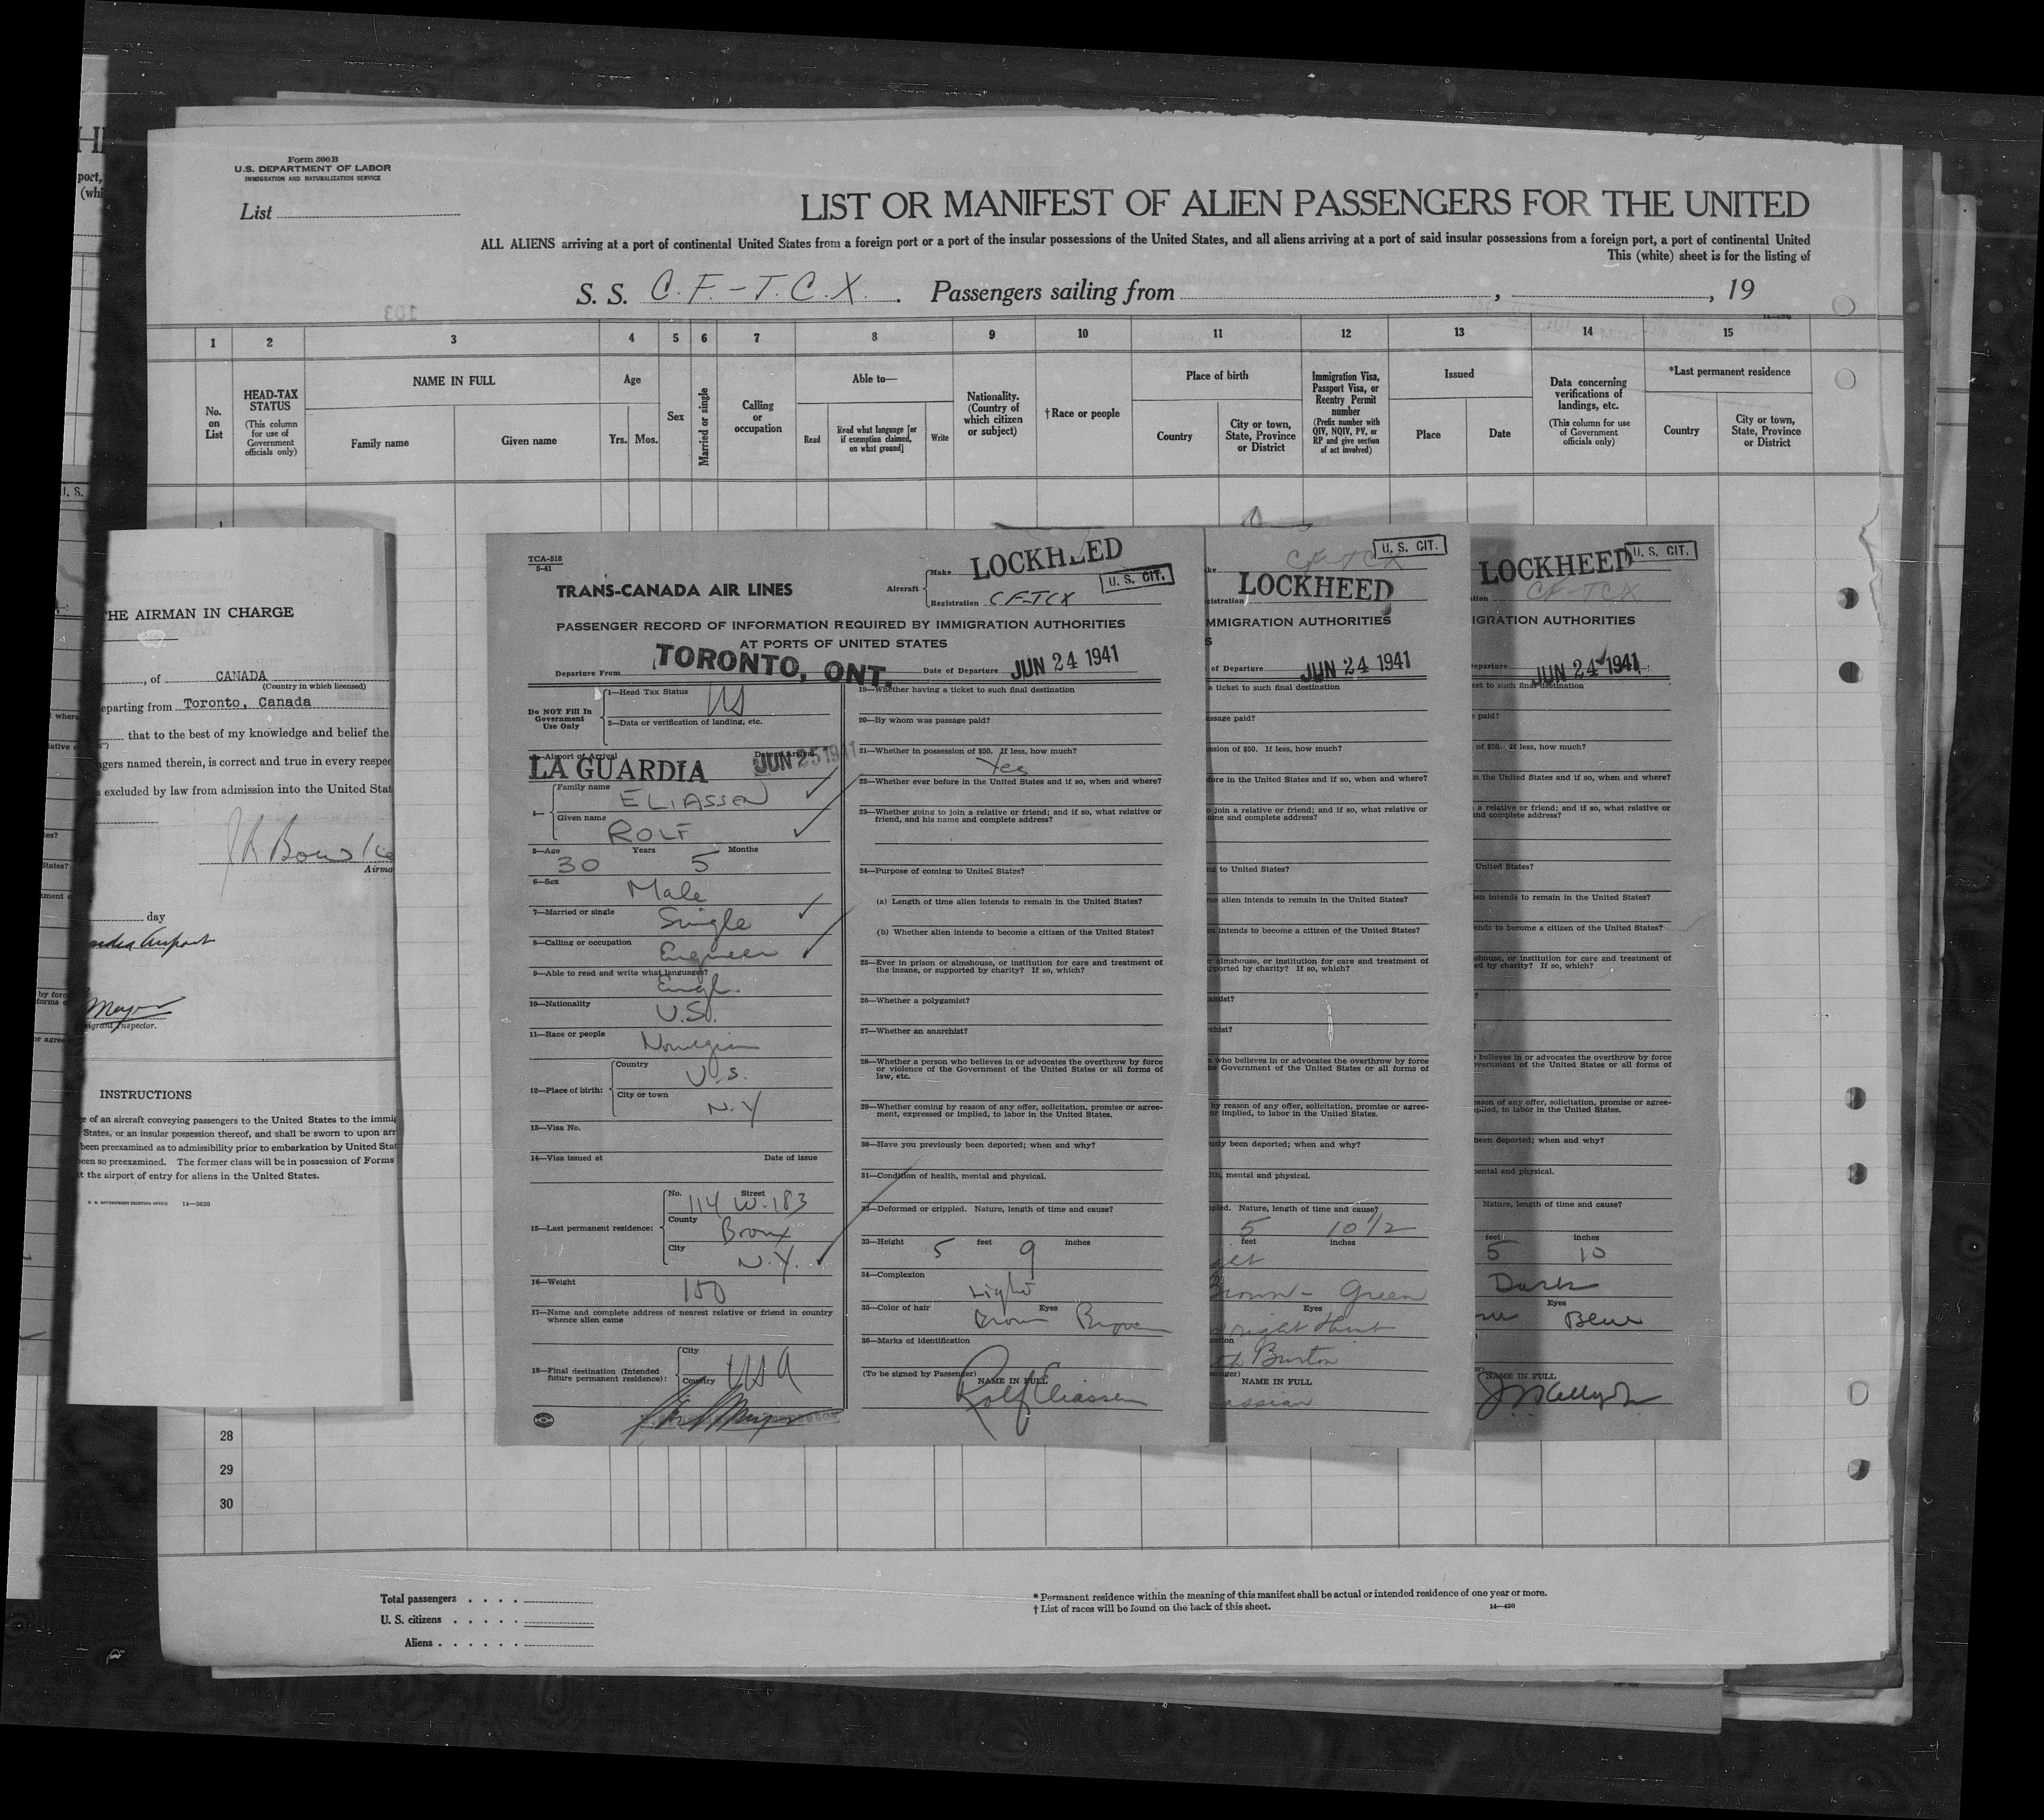 Form 500 B
U.S. DEPARTMENT OF LABOR
IMMIGRATION AND NATURALIZATION SERVICE
List
LIST OR MANIFEST OF ALIEN PASSENGERS FOR THE UNITED
ALL ALIENS arriving at a port of continental United States from a foreign port or a port of the insular possessions of the United States, and all aliens arriving at a port of said insular possessions from a foreign port, a port of continental United
This (white) sheet is for the listing of
S. S. C.F.-T.C.X. Passengers sailing from , , 19
1 2 3 4 5 6 7 8 9 10 11 12 13 14 15
No. on List
HEAD-TAX STATUS
(This column for use of Government officials only)
NAME IN FULL
Family name Given name
Age
Yrs. Mos.
Sex
Married or single
Calling or occupation
Able to—
Read
Read what language [or if exemption claimed, on what ground]
Write
Nationality. (Country of which citizen or subject)
†Race or people
Place of birth
Country
City or town, State, Province or District
Immigration Visa, Passport Visa, or Reentry Permit number
(Prefix number with QIV, NQIV, PV, or RP and give section of act involved)
Issued
Place Date
Data concerning verifications of landings, etc.
(This column for use of Government officials only)
*Last permanent residence
Country
City or town, State, Province or District
THE AIRMAN IN CHARGE
, of CANADA
(Country in which licensed)
eparting from Toronto, Canada
that to the best of my knowledge and belief the
gers named therein, is correct and true in every respec
s excluded by law from admission into the United Stat
Airma
day
Airport
Inspector.
INSTRUCTIONS
e of an aircraft conveying passengers to the United States to the immig
States, or an insular possession thereof, and shall be sworn to upon arr
been preexamined as to admissibility prior to embarkation by United Stat
een so preexamined. The former class will be in possession of Forms
t the airport of entry for aliens in the United States.
U. S. GOVERNMENT PRINTING OFFICE 14—2620
TCA-518
5-41
TRANS-CANADA AIR LINES
Aircraft
Make LOCKHEED
U. S. CIT.
Registration CF-TCX
PASSENGER RECORD OF INFORMATION REQUIRED BY IMMIGRATION AUTHORITIES
AT PORTS OF UNITED STATES
Departure From TORONTO, ONT. Date of Departure JUN 24 1941
Do NOT Fill In Government Use Only
1—Head Tax Status US
2—Data or verification of landing, etc.
3—Airport of Arrival LA GUARDIA Date of Arrival JUN 25 1941
4— Family name ELIASSEN
Given name ROLF
5—Age 30 Years 5 Months
6—Sex Male
7—Married or single Single
8—Calling or occupation Engineer
9—Able to read and write what languages? Engl.
10—Nationality U.S.
11—Race or people Norwegian
12—Place of birth: Country U.S.
City or town N.Y
13—Visa No.
14—Visa issued at Date of issue
15—Last permanent residence: No. Street 114 W. 183
County Bronx
City N.Y.
16—Weight 150
17—Name and complete address of nearest relative or friend in country whence alien came
18—Final destination (Intended future permanent residence): City
Country USA
19—Whether having a ticket to such final destination
20—By whom was passage paid?
21—Whether in possession of $50. If less, how much?
Yes
22—Whether ever before in the United States and if so, when and where?
23—Whether going to join a relative or friend; and if so, what relative or friend, and his name and complete address?
24—Purpose of coming to United States?
(a) Length of time alien intends to remain in the United States?
(b) Whether alien intends to become a citizen of the United States?
25—Ever in prison or almshouse, or institution for care and treatment of the insane, or supported by charity? If so, which?
26—Whether a polygamist?
27—Whether an anarchist?
28—Whether a person who believes in or advocates the overthrow by force or violence of the Government of the United States or all forms of law, etc.
29—Whether coming by reason of any offer, solicitation, promise or agreement, expressed or implied, to labor in the United States.
30—Have you previously been deported; when and why?
31—Condition of health, mental and physical.
32—Deformed or crippled. Nature, length of time and cause?
33—Height 5 feet 9 inches
34—Complexion Light
35—Color of hair Brown Eyes Brown
36—Marks of identification
(To be signed by Passenger) NAME IN FULL
Rolf Eliassen
CF-TCX
U. S. CIT.
LOCKHEED
MMIGRATION AUTHORITIES
of Departure JUN 24 1941
5 10 1/2
feet inches
Brown - Green
Eyes
NAME IN FULL
LOCKHEED
U. S. CIT.
CF-TCX
IGRATION AUTHORITIES
JUN 24 1941
Nature, length of time and cause?
feet inches
5 10
Dark
Eyes
Blue
NAME IN FULL
28
29
30
Total passengers
U. S. citizens
Aliens
* Permanent residence within the meaning of this manifest shall be actual or intended residence of one year or more.
† List of races will be found on the back of this sheet.
14—430